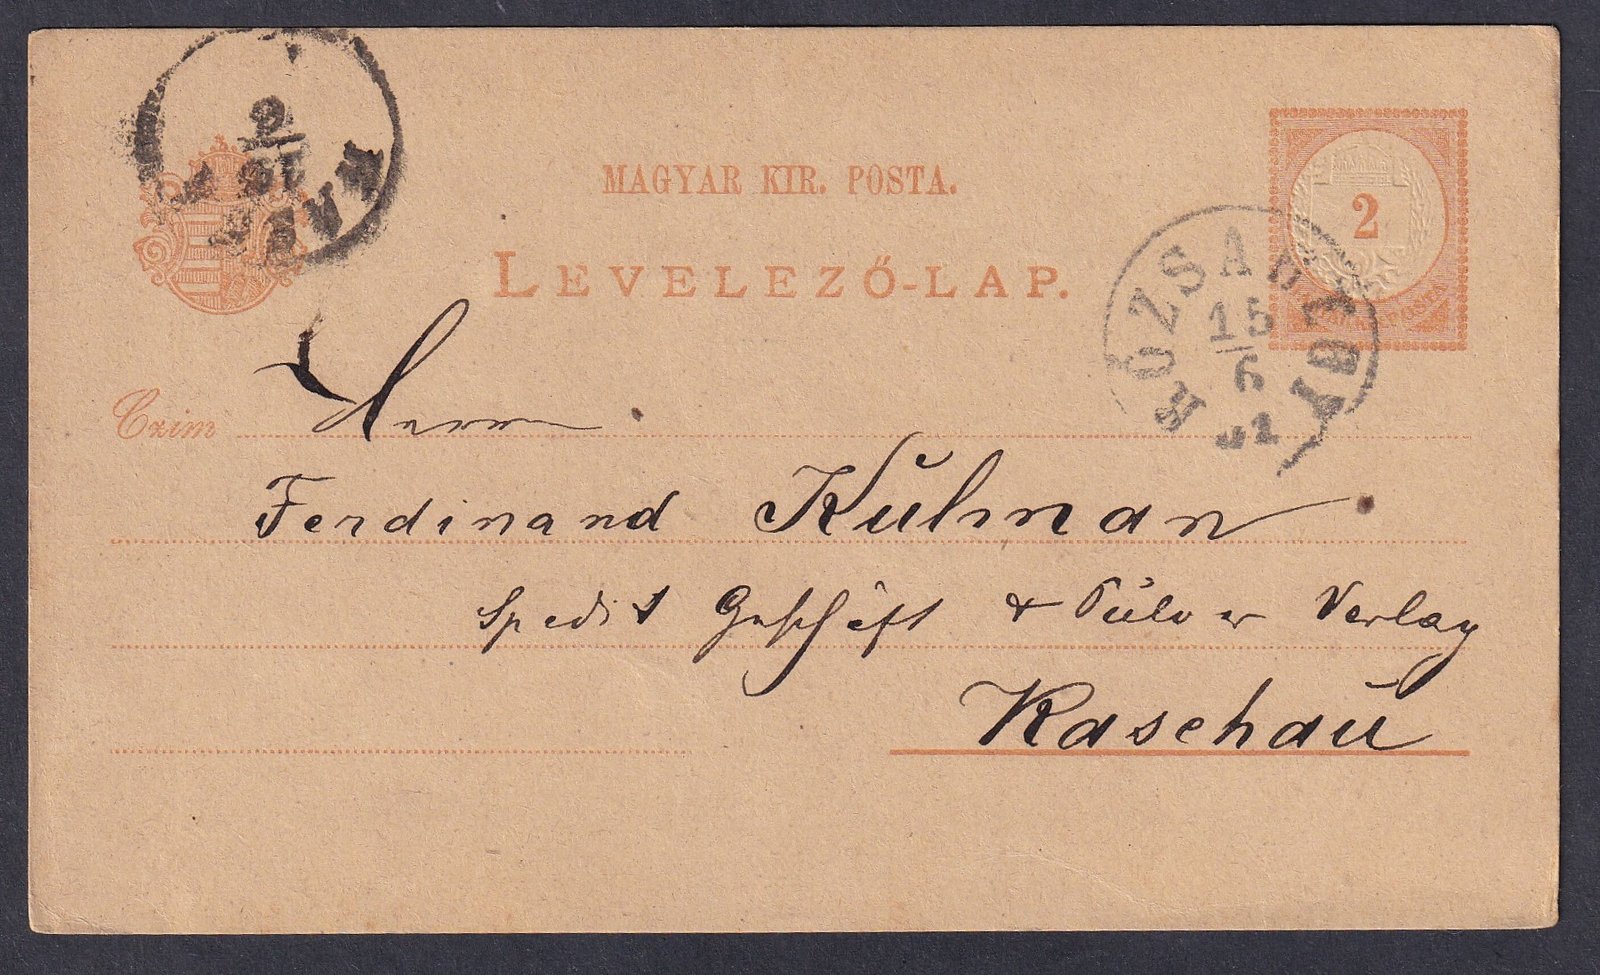 MAGYAR KIR. POSTA.
LEVELEZŐ-LAP.
2
15
6
Czim Herrn
Ferdinand Kulman
Spedit Geschäft & Pulver Verlag
Kaschau